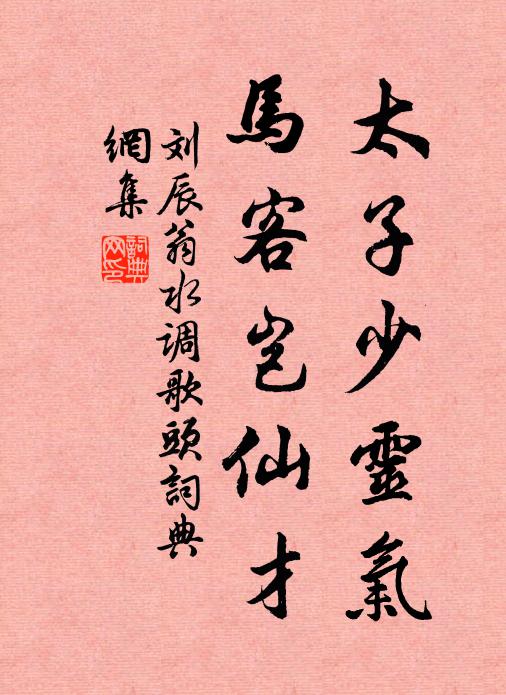 太子少靈氣
馬客岂仙才
刘辰翁水调歌頭詞典
網集
詞典網印